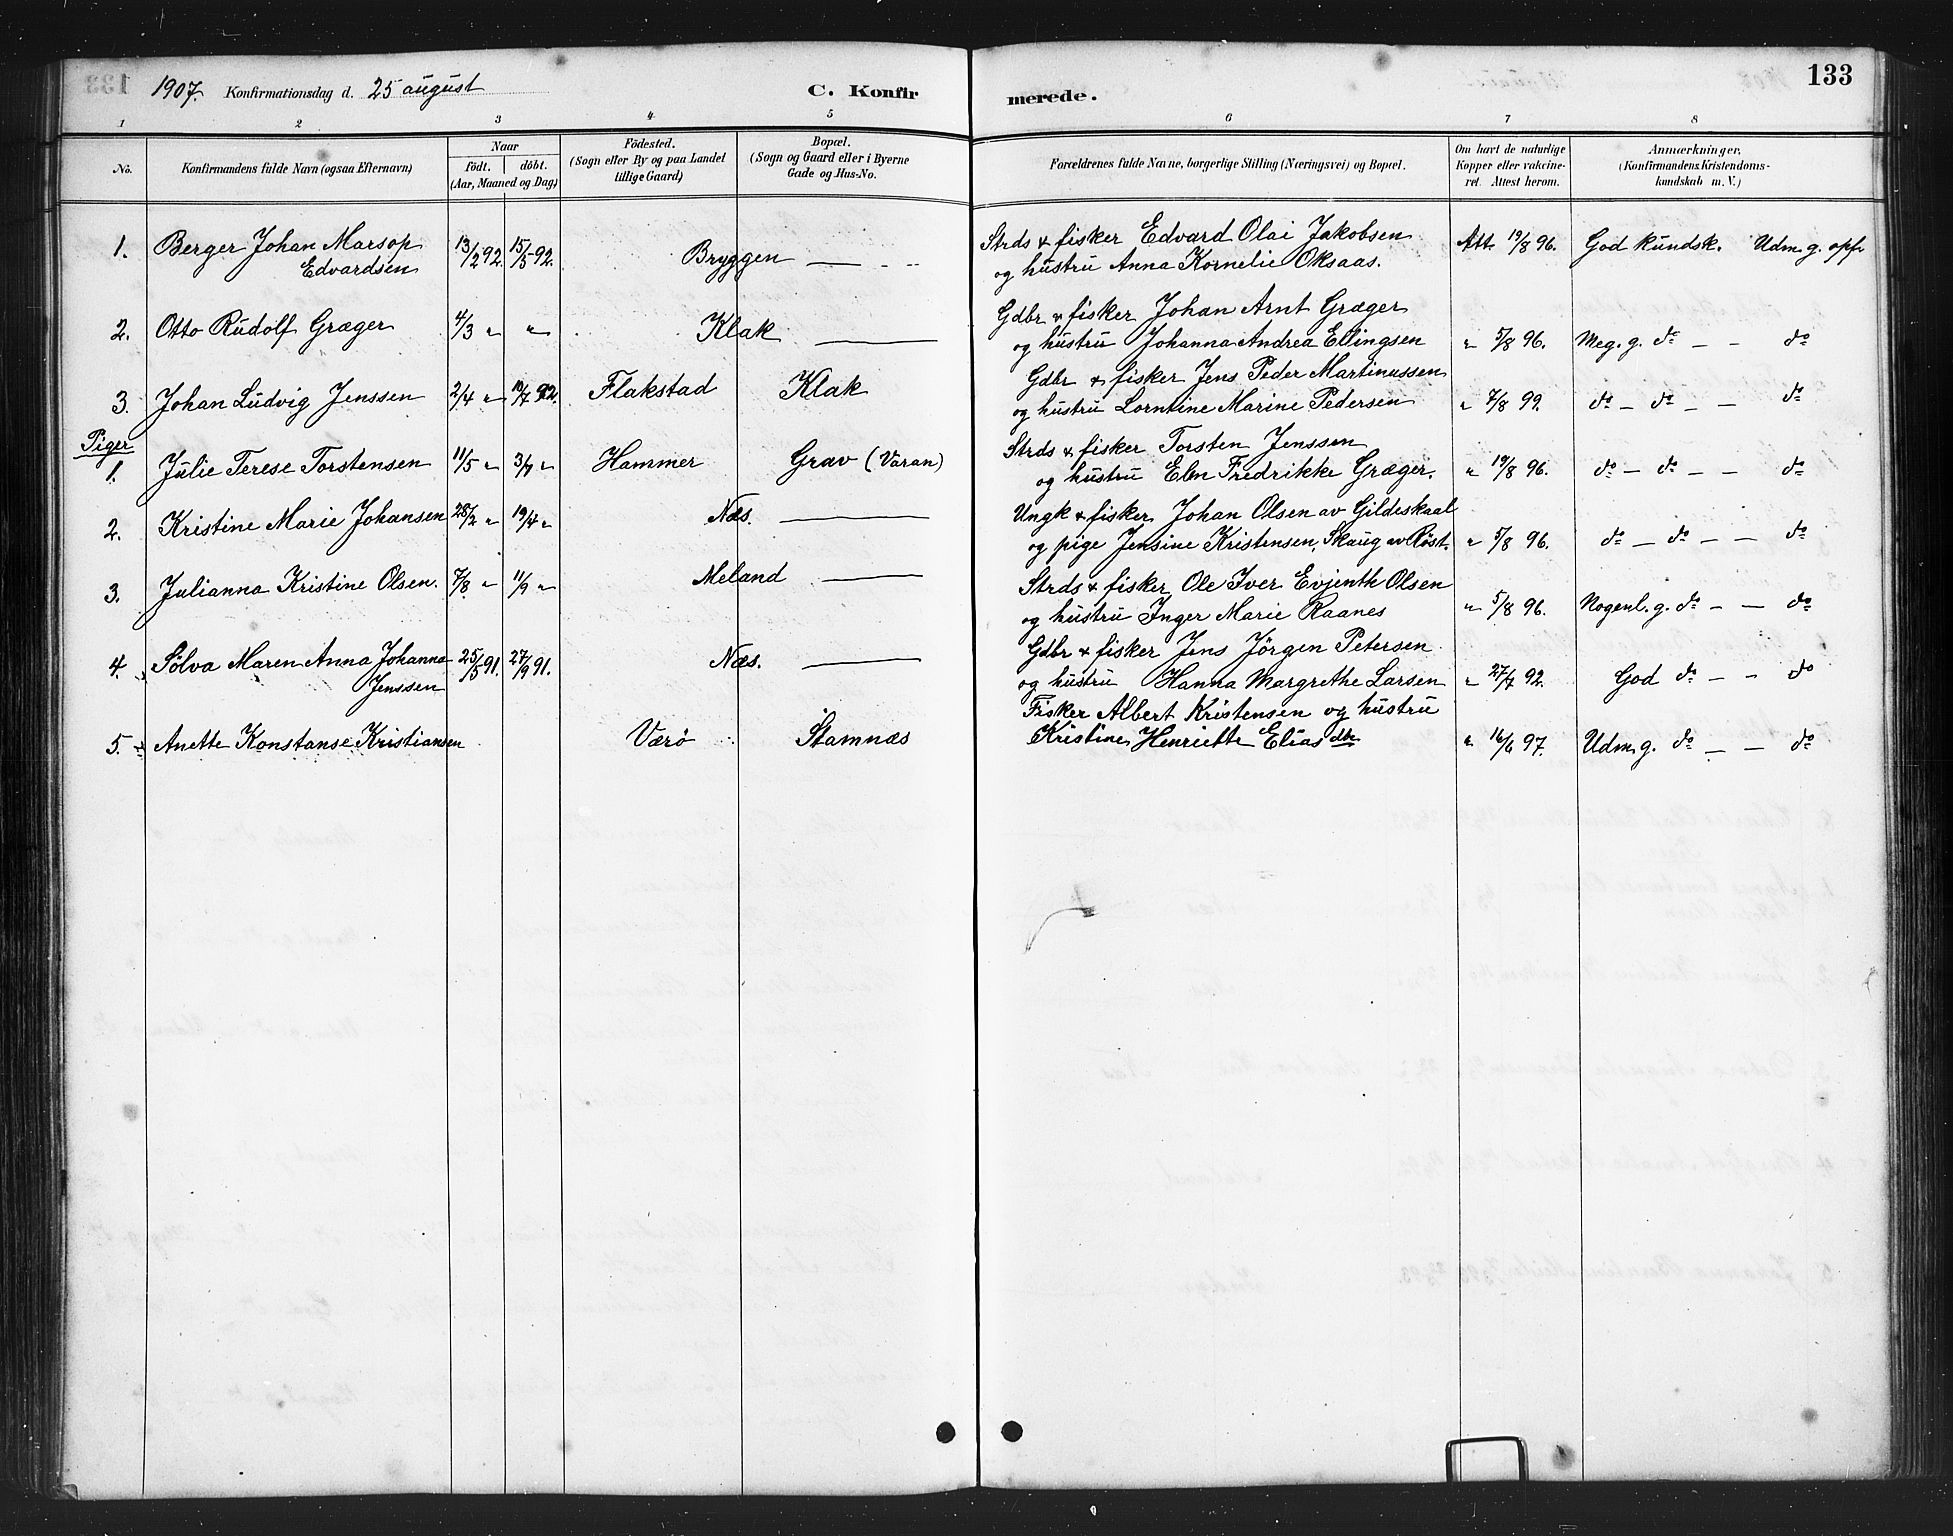 1907. Konfirmationsdag d. 25 august C. Konfirmerede. 133
1 2 3 4 5 6 7 8
No. Konfirmandens fulde Navn (ogsaa Efternavn) Naar født. døbt. (Aar, Maaned og Dag) Fødested. (Sogn eller By og paa Landet tillige Gaard) Bopæl. (Sogn og Gaard eller i Byerne Gade og Hus-No. Forældrenes fulde Navne, borgerlige Stilling (Næringsvei) og Bopæl. Om havt de naturlige Kopper eller vakcineret. Attest herom. Anmærkninger. (Konfirmandens Kristendomskundskab m. V.)
1. Berger Johan Marsop 13/2 92. 15/5 92. Bryggen — Strds & fisker Edvard Olai Jakobsen Att. 19/8 96. God kundsk. Udm. g. opf.
Edvardsen og hustru Anna Kornelie Oksaas.
2. Otto Rudolf Græger 4/3 " " Klak — Gdbr & fisker Johan Arnt Græger
og hustru Johanna Andrea Ellingsen " 5/8 96. Meg. g. do — — do
3. Johan Ludvig Jenssen 2/4 " 92. Flakstad Klak Gdbr & fisker Jens Peder Martinussen
og hustru Lorntine Marine Pedersen " 7/8 99. do — do — — do
Piger
1. Julie Terese Torstensen 11/5 " 3/7 " Hammer Grav (Væran) Strds & fisker Torsten Jenssen
og hustru Elen Fredrikke Græger. " 19/8 96. do — do — — do
2. Kristine Marie Johansen 28/2 " 19/4 " Næs. — Ungk & fisker Johan Olsen av Gildeskaal
og pige Jensine Kristensen, Skaug av Røst. " 5/8 96. do — do — — do
3. Julianna Kristine Olsen. 7/8 " 11/9 " Meland — Strds & fisker Ole Iver Evjenth Olsen
og hustru Inger Marie Raanes " 5/8 96. Nogenl. g. do — — do
4. Sølva Maren Anna Johanna 25/5 91. 27/9 91. Næs. — Gdbr & fisker Jens Jørgen Petersen
Jenssen og hustru Hanna Margrethe Larsen " 27/7 92. God do — — do
5. Anette Konstanse Kristiansen Værø Stamnæs Fisker Albert Kristensen og hustru
Kristine Henriette Elias dtr " 16/6 97. Udm. g. do — — do